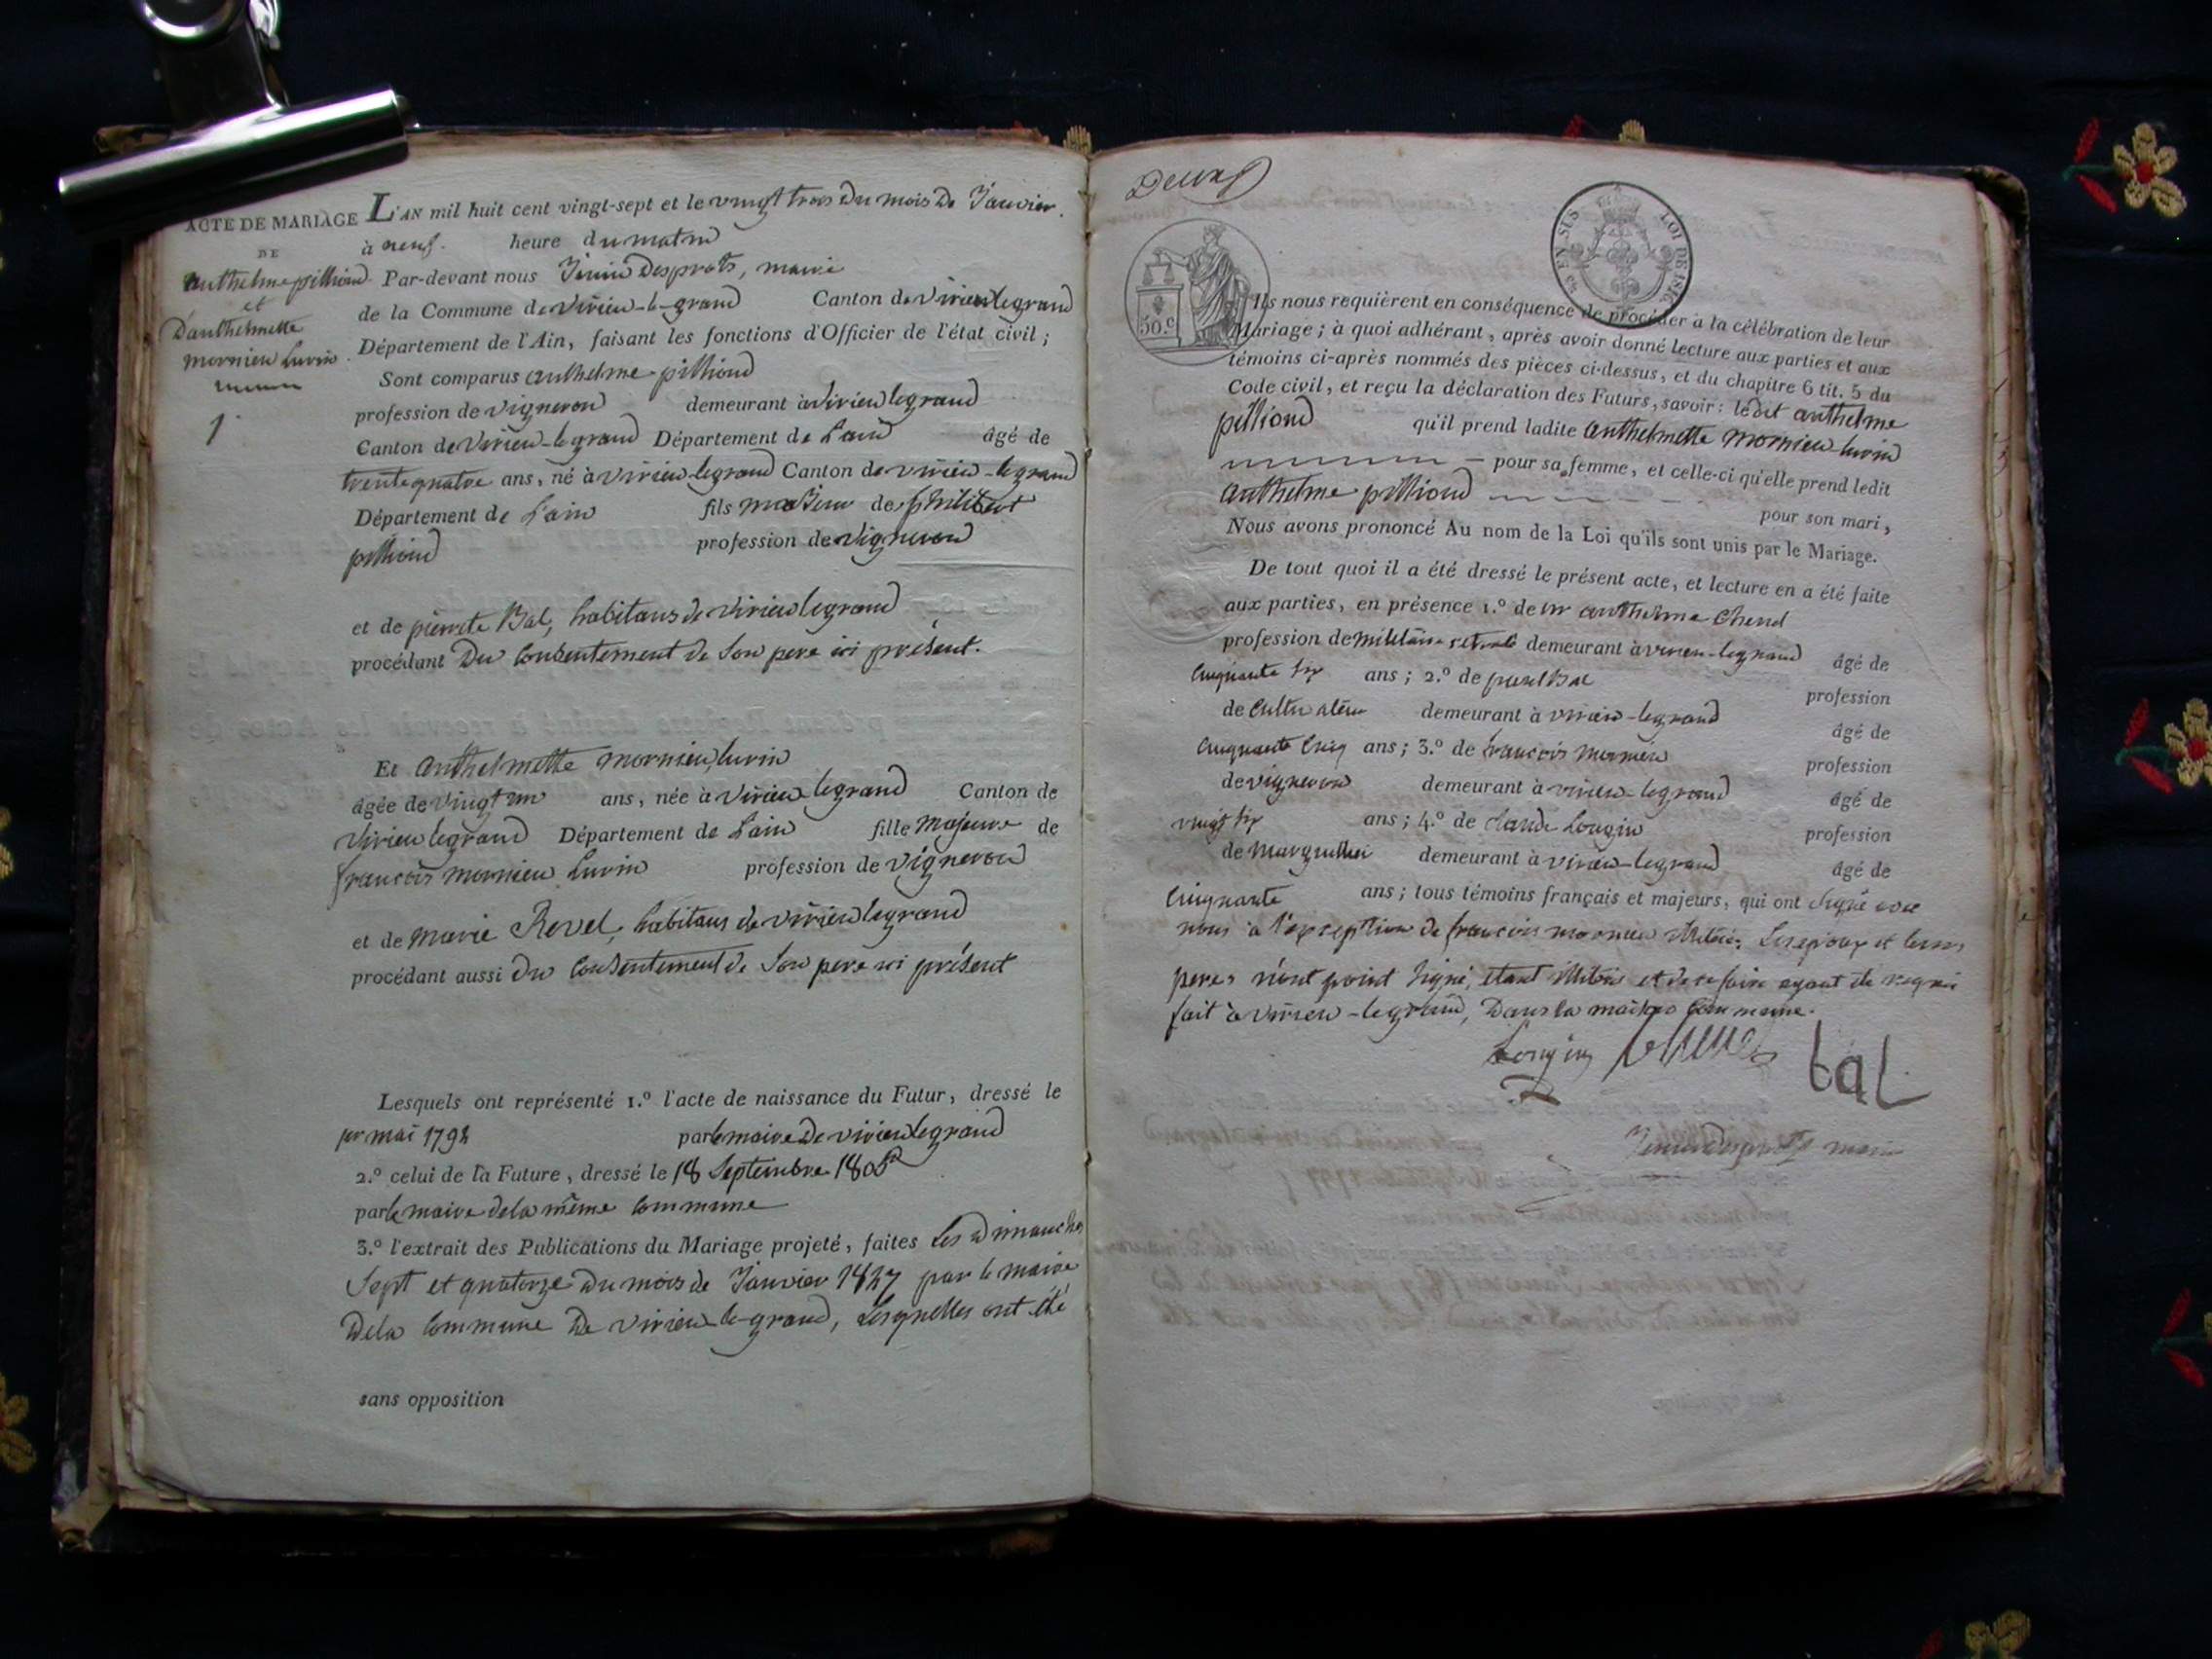 ACTE DE MARIAGE
DE
anthelme pilliond
et
D'anthelmette
mornieu Lurin
1
L'AN mil huit cent vingt-sept et le vingt trois du mois de Janvier
à neuf heure du matin
Par-devant nous Desprots, maire
de la Commune de virieu-le-grand Canton de virieu legrand
Département de l'Ain, faisant les fonctions d'Officier de l'état civil ;
Sont comparus anthelme pilliond
profession de vigneron demeurant à virieu legrand
Canton de virieu-le grand Département de L'ain âgé de
trente quatre ans, né à virieu-legrand Canton de virieu-legrand
Département de L'ain fils majeur de philibert
pilliond profession de vigneron
et de pierrette Bal, habitans de virieu legrand
procédant du consentement de son pere ici présent.
Et anthelmette mornieu lurin
âgée de vingt un ans, née à virieu legrand Canton de
virieu legrand Département de L'ain fille majeure de
francois mornieu Lurin profession de vigneron
et de marie Revel, habitans de virieu legrand
procédant aussi du consentement de son pere ici présent
Lesquels ont représenté 1.º l'acte de naissance du Futur, dressé le
pr mai 1792 par le maire de virieu legrand
2.º celui de la Future, dressé le 18 septembre 1805
par le maire de la même commune
3.º l'extrait des Publications du Mariage projeté, faites les dimanches
sept et quatorze du mois de Janvier 1827 par le maire
de la commune de virieu-le-grand, lesquelles ont été
sans opposition
Deux
50.c
EN SUS LOI DE 1816
Ils nous requièrent en conséquence de procéder à la célébration de leur
Mariage ; à quoi adhérant, après avoir donné lecture aux parties et aux
témoins ci-après nommés des pièces ci-dessus, et du chapitre 6 tit. 5 du
Code civil, et reçu la déclaration des Futurs, savoir : ledit anthelme
pilliond qu'il prend ladite anthelmette mornieu-lurin
pour sa femme, et celle-ci qu'elle prend ledit
anthelme pilliond pour son mari,
Nous avons prononcé Au nom de la Loi qu'ils sont unis par le Mariage.
De tout quoi il a été dressé le présent acte, et lecture en a été faite
aux parties, en présence 1.º de mr anthelme Chenel
profession de militaire retraité demeurant à virieu-legrand âgé de
cinquante six ans ; 2.º de Bal profession
de cultivateur demeurant à virieu-legrand âgé de
cinquante cinq ans ; 3.º de francois mornieu profession
de vigneron demeurant à virieu-legrand âgé de
vingt six ans ; 4.º de claude Longin profession
de marguillier demeurant à virieu-legrand âgé de
cinquante ans ; tous témoins français et majeurs, qui ont signé avec
nous à l'exception de francois mornieu Les epoux et leurs
peres n'ont point signé, etant et de ce faire ayant été requis
fait à virieu-legrand, Dans la maison commune.
Longin Chenel bal
Desprots maire